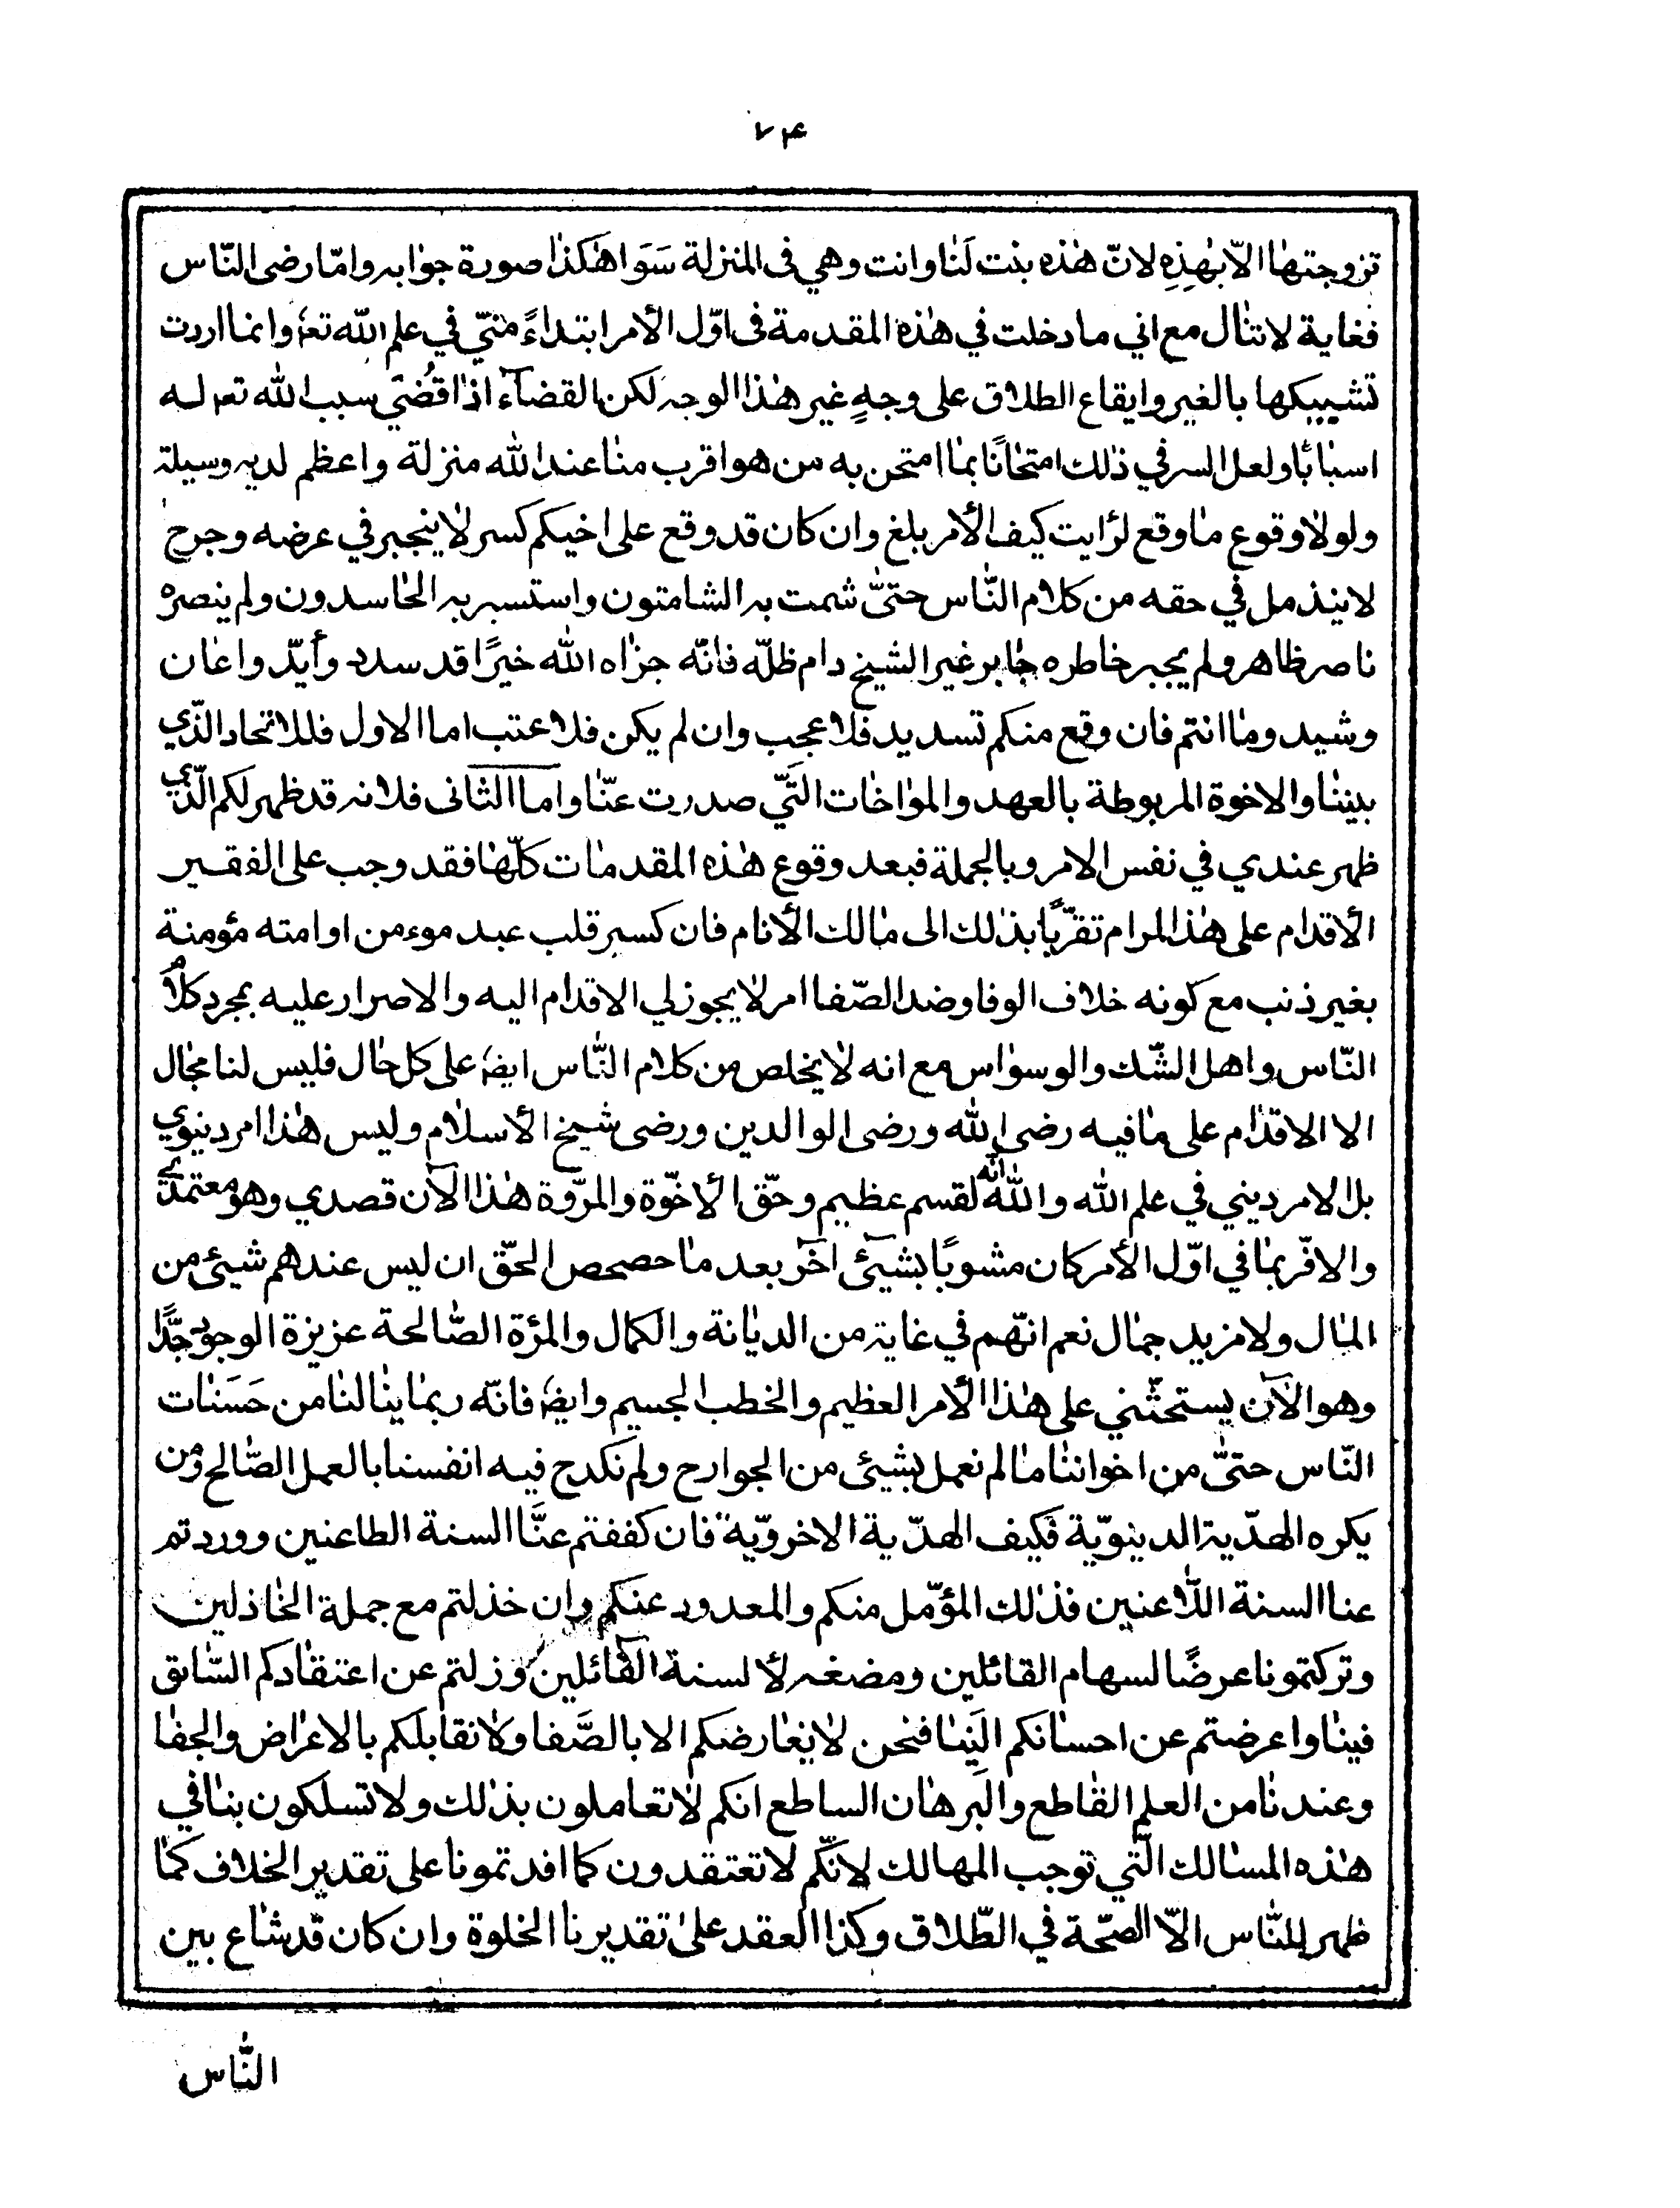 ٧٤
تزوجتها الّا بهٰذِهِ لانّ هٰذه بنت لَنٰا وانت وهي فى المنزلة سَوَا هٰكَذٰا صورة جوٰابه وامّا رضى النّاس
فغاية لا تنٰال مع اني ما دخلت في هٰذه المقدمة فى اوّل الأمر ابتداءً منّي في علم اللّه تعٰ وانما اردت
تشبيكها بالغير وايقاع الطلاق على وجهٍ غير هٰذا الوجه لكن القضآء اذٰا قُضَي سبب اللّه تعٰ له
اسبٰابًا ولعل السر في ذٰلك امتحٰانًا بمٰا امتحن به من هو اقرب منٰا عند اللّه منزلة واعظم لديه وسيلة
ولولٰا وقوع مٰا وقع لرٔايت كيف الأمر بلغ وان كان قد وقع على اخيكم كسر لٰا ينجبر في عرضه وجرح
لا ينذمل في حقه من كلام النّٰاس حتىّٰ شمت به الشامتون واستسبر به الحٰاسدون ولم ينصره
ناصر ظاهر ولم يجبر خاطره جٰابر غير الشيخ دام ظلّه فانّه جزٰاه اللّٰه خيرًا قد سدد وأيّد واعٰان
وشيد ومٰا انتم فان وقع منكم تسديد فلا عجب وان لم يكن فلا عتب اما الاول فللاتحاد الّذي
بيننٰا والاخوة المربوطة بالعهد والموٰاخٰات التَّي صدرت عنّٰا واما الثٰانى فلانه قد ظهر لكم الّذي
ظهر عندي في نفس الامر وبالجملة فبعد وقوع هٰذه المقدمٰات كلّهٰا فقد وجب على الفقير
الأقدٰام على هٰذا المرام تقرّبًا بذٰلك الى مٰالك الأنام فان كسر قلب عبد موءمن او امته مؤمنة
بغير ذنب مع كونه خلاف الوفا وضد الصّفا امر لٰا يجوز لي الاقدٰام اليه والاصرار عليه بمجرد كلاٰم
النّاس واهل الشّك والوسوٰاس مع انه لٰا يخلص من كلام النّٰاس ايضٰ على كل حٰال فليس لنا مجٰال
الا الاقدٰام على مٰا فيه رضى اللّٰه ورضى الوالدين ورضى شيخ الأسلٰام وليس هٰذا امر دنيوي
بل الامر ديني في علم اللّٰه واللّٰه انّه لقسم عظيم وحّق الأخّوة والمرّوة هٰذا الآن قصدي وهو معتمدي
والا فّربمٰا في اوّل الأمر كان مشوبًا بشيئ آخَر بعد مٰا حصحص الحّق ان ليس عندهم شيئ من
المٰال ولا مزيد جمٰال نعم انّهم في غاية من الديٰانة والكمال والمرٔة الصّٰالحة عزيزة الوجود جَّدًا
وهو الآن يستحثّني على هٰذا الأمر العظيم والخطب الجسيم وايضٰ فانّه ربمٰا ينٰالنٰا من حَسَنٰات
النّاس حتىّٰ من اخواننٰا مٰا لم نعمل بشيئ من الجوارح ولم نكدح فيه انفسنا بالعمل الصّٰالح ومن
يكره الهدّية الدينوّية فكيف الهدّية الاخروّية فان كففتم عنَّا السنة الطاعنين ووردتم
عنا السنة اللّٰاعنين فذٰلك المؤمّل منكم والمعدود عنكم وان خذلتم مع جملة الخٰاذلين
وتركتمونا عرضًا لسهام القائلين ومضغه لألسنة القٰائلين وزلتم عن اعتقٰادكم السّٰابق
فينٰا واعرضتم عن احسٰانكم الَينٰا فنحن لٰا نعٰارضكم الا بالصَّفا ولٰا نقابلكم بالاعرٰاض والجفٰا
وعندنٰا من العلم القٰاطع والبرهٰان الساطع انكم لٰا تعٰاملون بذٰلك ولا تسلكون بنٰا في
هٰذه المسٰالك الّتي توجب المهالك لانّكم لا تعتقدون كما افدتمونا على تقدير الخلاف كمٰا
ظهر للنّٰاس الّا الصّحّة في الطّلاق وكذا العقد علىٰ تقديرنا الخلوة وان كان قد شٰاع بين
النّٰاس